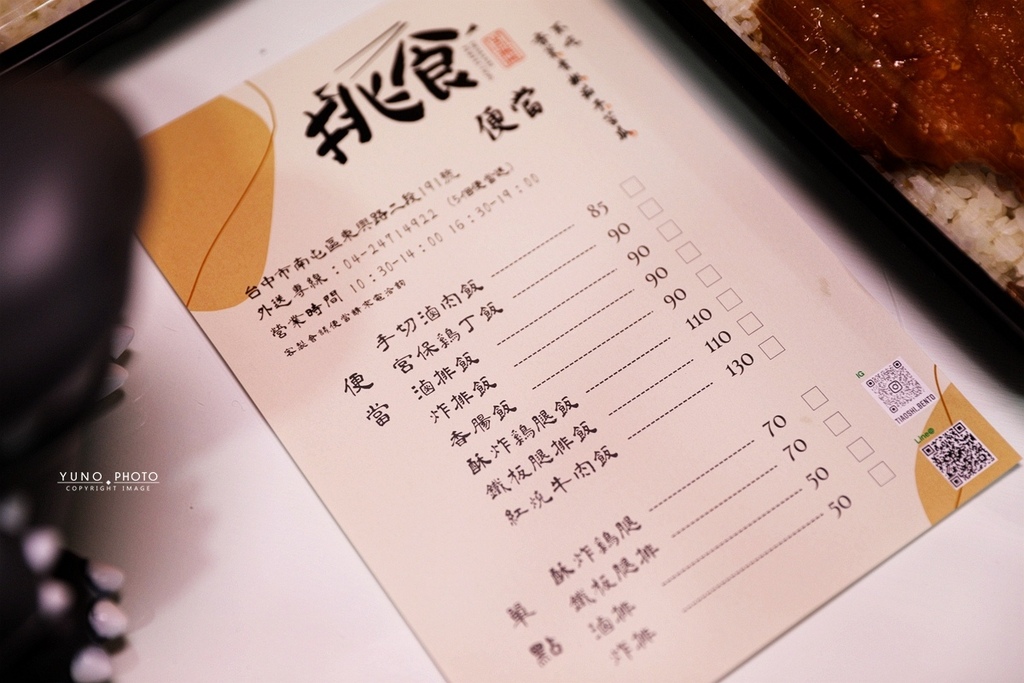 挑食
便當
台中市南屯區東興路二段191號
外送專線：04-24714922 (5個便當送)
營業時間 10:30-14:00 16:30-19:00
便當
手切滷肉飯 85
宮保鷄丁飯 90
滷排飯 90
炸排飯 90
香腸飯 90
酥炸鷄腿飯 110
鐵板腿排飯 110
紅燒牛肉飯 130
單點
酥炸鷄腿 70
鐵板腿排 70
滷排 50
炸排 50
IG
TIAOSHI_BENTO
Line@
YUNO PHOTO
COPYRIGHT IMAGE